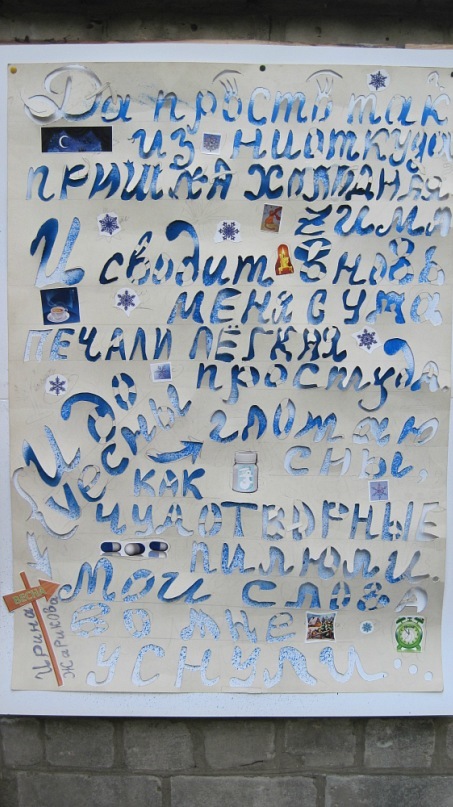 Да просто так
из ниоткуда
пришла холодная
зима
И сводит вновь
меня с ума
печали лёгкая
простуда.
И до
весны
глотаю
сны,
как
чудотворные
пилюли.
Мои слова
во мне
уснули...
Ирина
Жарикова